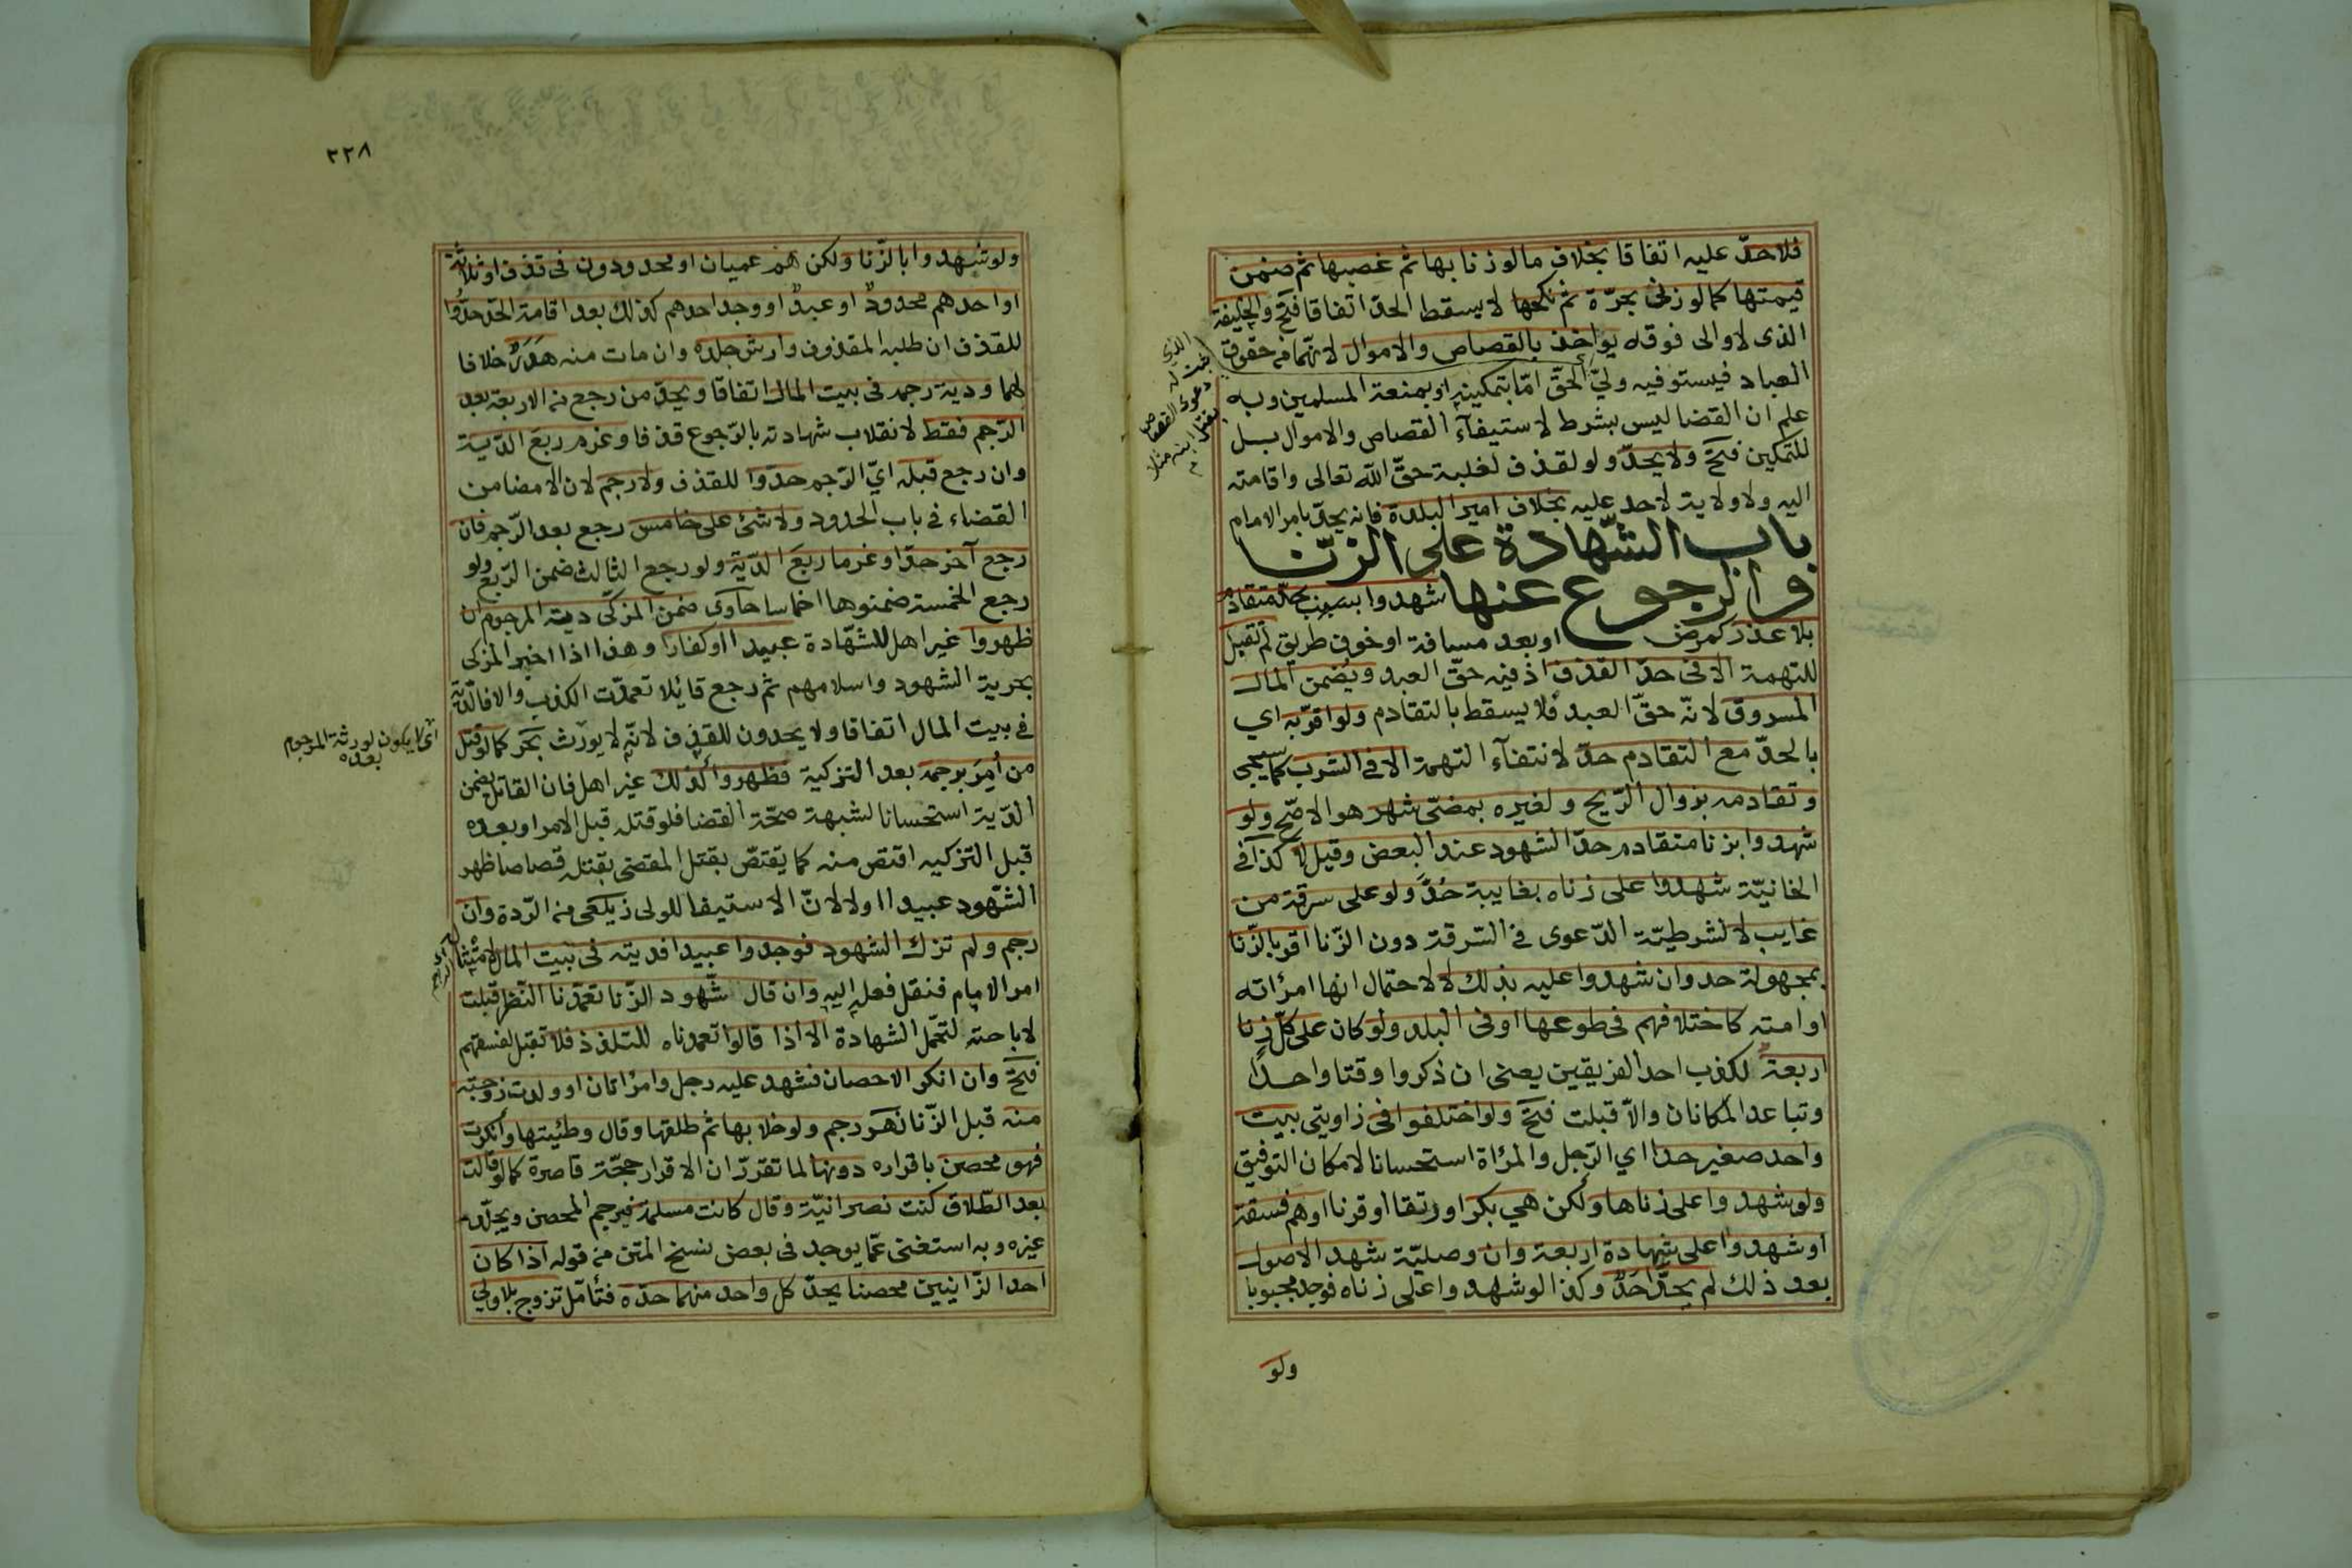 فلا حدّ عليه اتفاقا بخلاف ما لو زنا بها ثم غصبها ثم ضمن
قيمتها كما لو زنى بحرّة ثم نكحها لا يسقط الحدّ اتفاقا فتح والخليفة
الذى لا والى فوقه يواخذ بالقصاص والاموال لانهما من حقوق
العباد فيستوفيه وليّ الحقّ امّا بتمكينه او بمنعة المسلمين وبه
علم ان القضا ليس بشرط لاستيفآء القصاص والاموال بل
للتمكين فتح ولا يحدّ ولو لقذف لغلبة حقّ الله تعالى واقامته
اليه ولا ولاية لاحد عليه بخلاف امير البلدة فانه يحدّ بامر الامام
باب الشّهادة على الزّنا
والرجوع عنها شهدوا بسبب حدّ متقادم
بلا عذر كمرض او بعد مسافة او خوف طريق لم تقبل
للتهمة الا فى حدّ القذف اذ فيه حقّ العبد ويضمن المال
المسروق لانّه حقّ العبد فلا يسقط بالتقادم ولو اقرّ به اي
بالحدّ مع التقادم حدّ لانتفآء التهمة الا في الشرب كما سيجي
وتقادمه بزوال الرّيح ولغيره بمضىّ شهر هو الاصحّ ولو
شهدوا بزنا متقادم حدّ الشهود عند البعض وقيل لا كذا في
الخانيّة شهدوا على زناه بغايبة حُدَّ ولو على سرقة من
غايب لا لشرطيّة الدّعوى في السّرقة دون الزّنا اقر بالزّنا
بمجهولة حد وان شهدوا عليه بذلك لا لاحتمال انها امرأته
او امته كاختلافهم فى طوعها او فى البلد ولو كان على كلّ زنا
اربعة لكذب احد الفريقين يعنى ان ذكروا وقتا واحدًا
وتباعد المكانان والاّ قبلت فتح ولو اختلفوا فى زاويتى بيت
واحد صغير حدا اي الرّجل والمرأة استحسانا لامكان التوفيق
ولو شهدوا على زناها ولكن هي بكر او رتقا او قرنا او هم فسقة
او شهدوا على شهادة اربعة وان وصليّة شهد الاصول
بعد ذلك لم يحدّ احدٌ وكذا لو شهدوا على زناه فوجد مجبوبا
ولو
٢٢٨
ولو شهدوا بالزّنا ولكن هم عميان او محدودون فى قذف او ثلاثة
او احدهم محدودٌ او عبدٌ او وجد احدهم كذلك بعد اقامة الحّد حدُّوا
للقذف ان طلبه المقذوف وارش جلده وان مات منه هَدَرٌ خلافا
لهما ودية رجمه فى بيت المال اتفاقا ويحدّ من رجع من الاربعة بعد
الرّجم فقط لانقلاب شهادته بالرّجوع قذفا وغرم ربع الدّية
وان رجع قبله ايّ الرّجم حدّوا للقذف ولا رجم لان الامضا من
القضاء في باب الحدود ولا شئ على خامس رجع بعد الرّجم فان
رجع آخر حدّا وغرما ربع الدّية ولو رجع الثالث ضمن الرّبع ولو
رجع الخمسة ضمنوها اخماسا حاوى ضمن المزكى دية المرجوم ان
ظهروا غير اهل للشّهادة عبيدا او كفارا وهذا اذا اخبر المزكى
بحرية الشهود واسلامهم ثم رجع قايلا تعمدّت الكذب والا فالدّية
في بيت المال اتفاقا ولا يحدون للقذف لانّه لا يورث بحر كما لو قتل
من أمِرَ برجمه بعد التزكية فظهروا كذلك غير اهل فان القاتل يضمن
الدّية استحسانا لشبهة صحّة القضا فلو قتله قبل الامر او بعده
قبل التزكيه اقتص منه كما يقتصّ بقتل المقضى بقتله قصاصا ظهر
الشّهود عبيدا او لا لانّ الاستيفا للولى زيلعى من الرّدة وان
رجم ولم تزك الشهود فوجدوا عبيدا فديته فى بيت المال لامتثال
امر الامام فنقل فعله اليه وان قال شهود الزّنا تعمدّنا النّظر قبلت
لاباحته لتحّمل الشهادة الا اذا قالوا تعمدناه للتلذذ فلا تقبل لفسقهم
فتح وان انكر الاحصان فشهد عليه رجل وامرأتان او ولدت زوجته
منه قبل الزّنا نهر رجم ولو خلا بها ثم طلقها وقال وطئيتها وانكرت
فهو محصن باقراره دونها لما تقررّ ان الاقرار حجّة قاصرة كما لو قالت
بعد الطّلاق كنت نصرانيّة وقال كانت مسلمة فيرجم المحصن ويجلّد
غيره وبه استغنى عمّا يوجد فى بعض نسخ المتن من قوله اذا كان
احد الزّانيين محصنا يحدّ كل واحد منهما حدّه فتأمل تزوج بلا ولي
اى لا يكون لورثة المرجوم
بعده